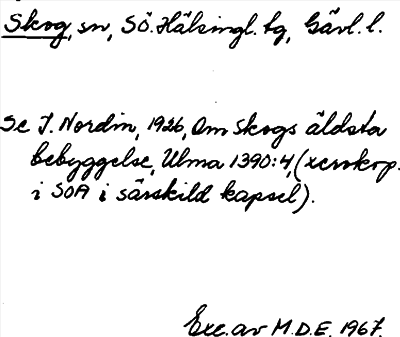 Skog, sn, Sö. Hälsingl. tg, Gävl. l.
Se J. Nordin, 1926, Om Skogs äldsta
bebyggelse, Ulma 1390:4, (xerokop.
i SOA i särskild kapsel).
Exc. av M.D.E. 1967.